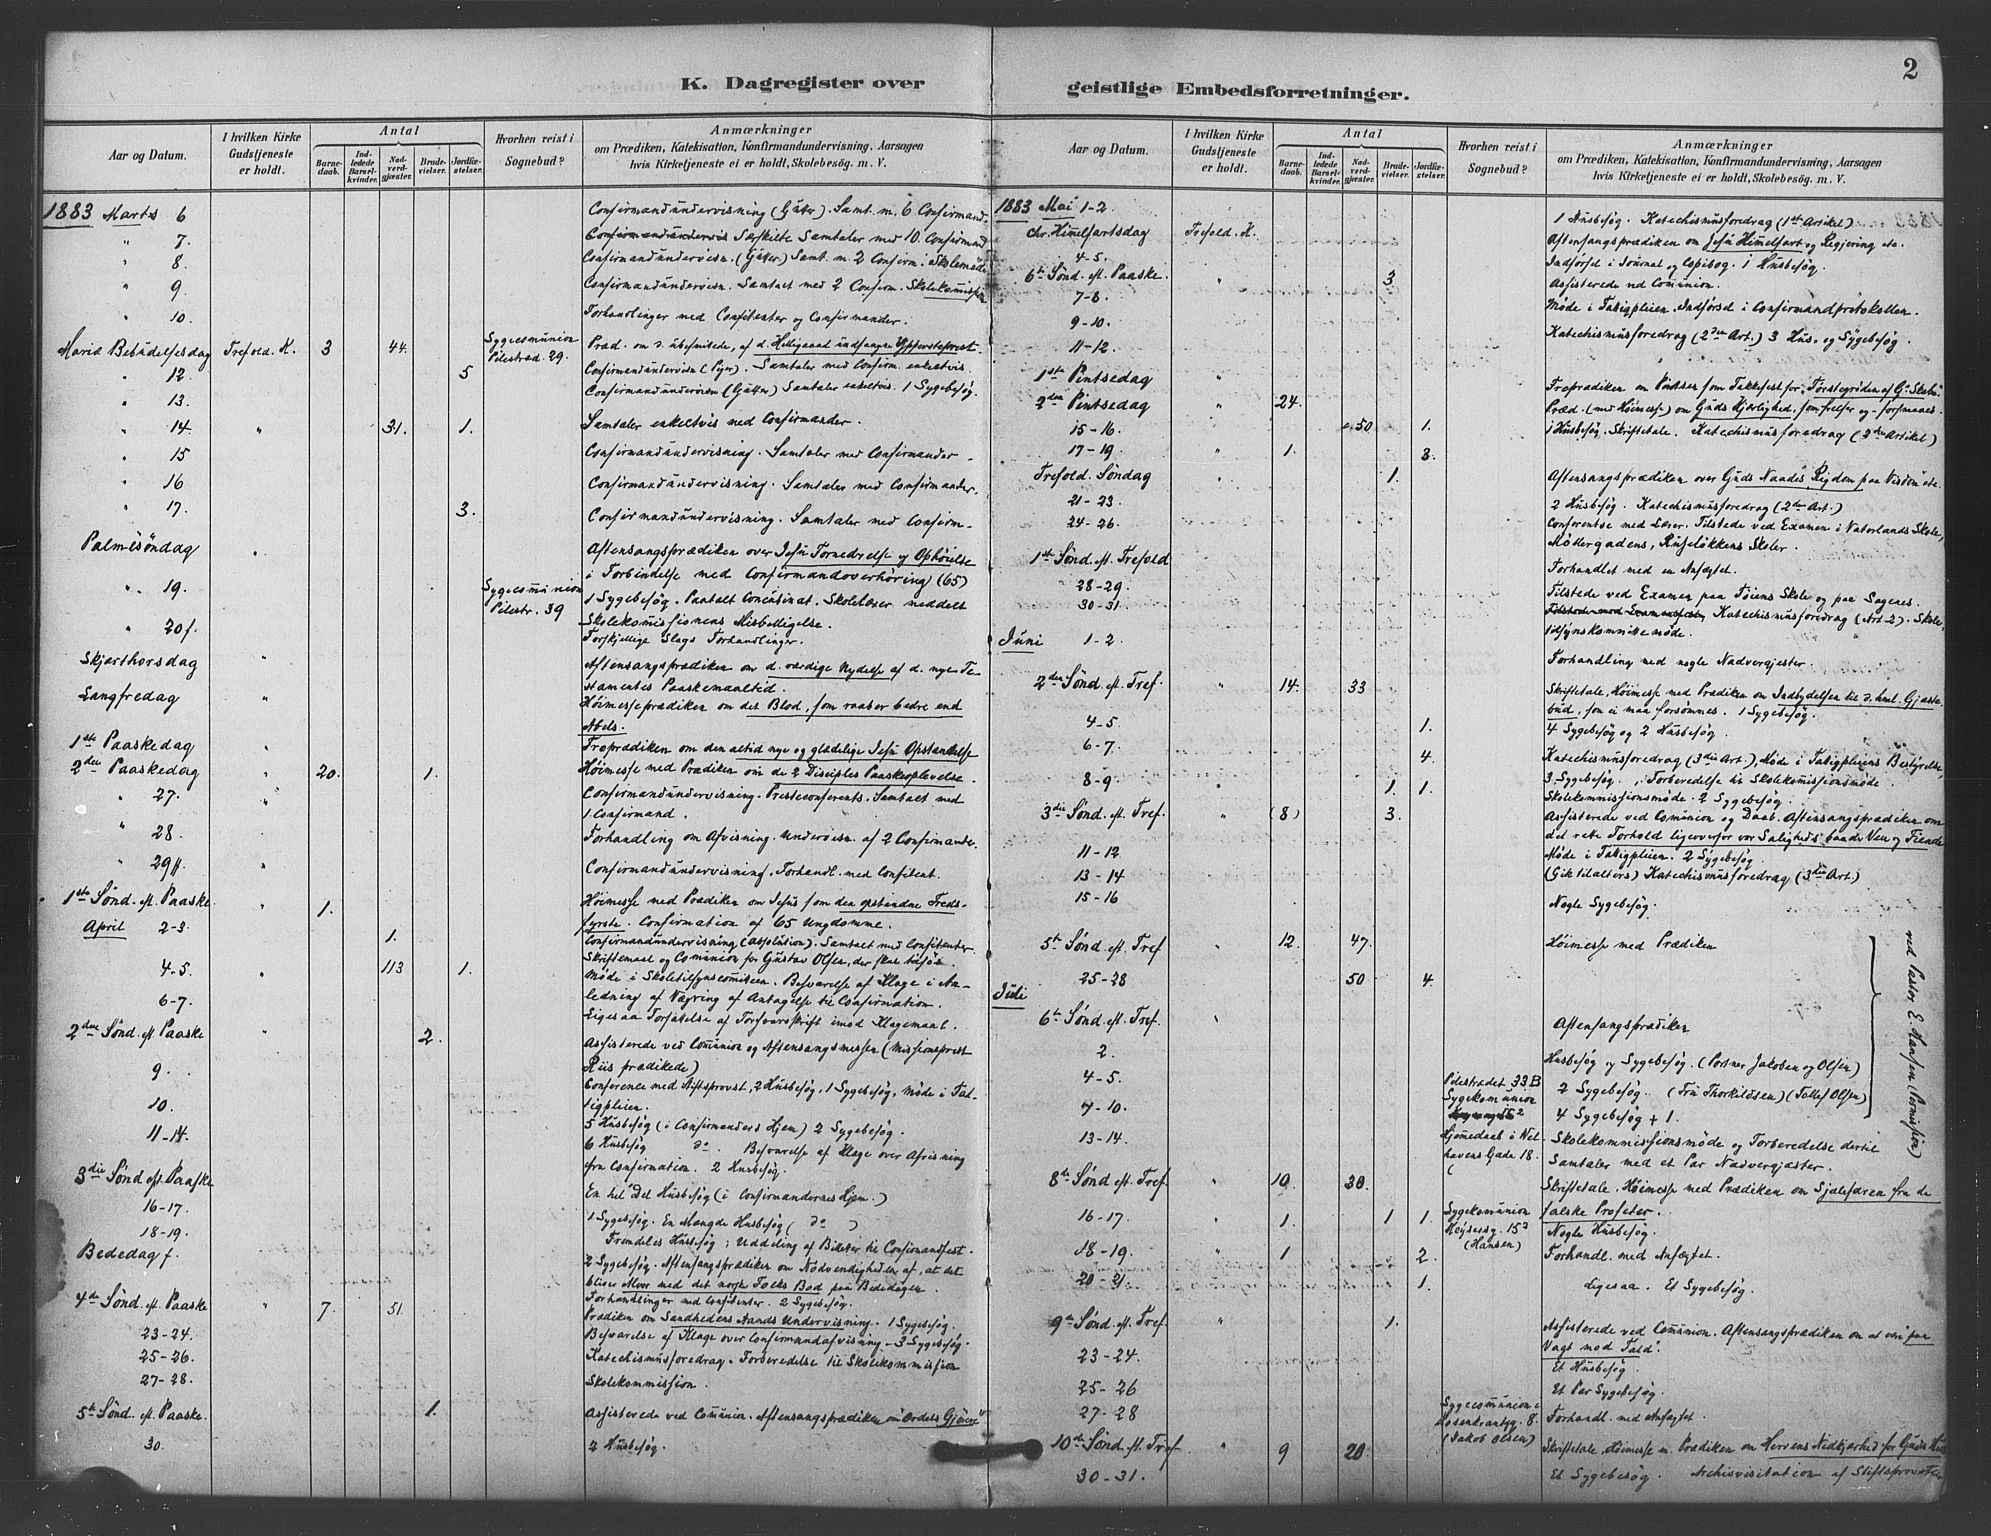 K. Dagregister over
Aar og Datum.
I hvilken Kirke
Gudstjeneste
er holdt.
Antal
Barne-
daab.
Ind-
ledede
Barsel-
kvinder.
Nad-
verd-
gjæster.
Brude-
vielser.
Jordfæ-
stelser.
Hvorhen reist i
Sognebud?
Anmærkninger
om Prædiken, Katekisation, Konfirmandundervisning, Aarsagen
hvis Kirketjeneste ei er holdt, Skolebesøg. m. V.
1883 Marts 6 Confirmandundervisning (Gutter). Samt. m. 6 Confirmand.
" 7. Særskilte Samtaler med 10. Confirmand
" 8. Confirmandundervisn. (Gutter) Samt. m. 2 Confirm. Skolemøde
" 9. Confirmandundervisn. Samtalt med 2 Confirm. Skolekomission
" 10. Forhandlinger med Confitenter og Confirmander.
Mariæ Bebudelsesdag Trefold. K. 3 44. Sygecommunion Pilestræd. 29. Præd. om d. ubesmittede, af d. Helligaand undfangne Ypperstepræst.
" 12 5 Confirmandundervisn (Piger). Samtaler med Confirm. enkeltvis.
" 13. Confirmandundervisn (Gutter) Samtaler enkeltvis. 1 Sygebesøg.
" 14. " 31. 1. Samtaler enkeltvis med Confirmander.
" 15 Confirmandundervisning. Samtaler med Confirmander.
" 16 Confirmandundervisning. Samtaler med Confirmander.
" 17. 3. Confirmandundervisning. Samtaler med Confirm.
Palmesøndag " Aftensangsprædiken over Jesu Fornedrelse og Ophøielse
i Forbindelse med Confirmandoverhøring (65)
" 19. Sygecommunion Pilestr. 39 1 Sygebesøg. Skolelærer meddelt
Skolekomissionens Misbilligelse.
" 20f. Forskjellige Slags Forhandlinger.
Skjærthorsdag " Aftensangsprædiken om d. værdige Nydelse af d. nye Te-
stamentes Paaskemaaltid.
Langfredag " Høimesseprædiken om det Blod, som raaber bedre end
Abels.
1ste Paaskedag " Froprædiken om den altid nye og glædelige Jesu Opstandelse
2den Paaskedag " 20. 1. Høimesse med Prædiken om de 2 Disciples Paaskeoplevelse.
" 27. " Confirmandundervisning. Præsteconferents. Samtalt med
1 Confirmand.
" 28. Forhandling om Afvisning. Undervisn. af 2 Confirmander.
" 29 ff. " Confirmandundervisning. Forhandl. med Confitent.
1ste Sønd. eft. Paaske " 1. Høimesse med Prædiken om Jesus som den opstandne Freds-
fyrste. Confirmation af 65 Ungdomme.
April 2-3. 1. Confirmandundervisning (Absolution). Samtalt med Confitenter.
4-5. " 113 1. Skriftemaal og Comunion for Gustav Olsen, der skal tilsøs.
6-7. Møde i Skoletilsynscomiteen. Besvarelse af Klage i An-
ledning af Nægting af Antagelse til Confirmation.
Ligesaa Forfatelse af Forsvarsskrift imod Klagemaal.
2den Sønd. eft. Paaske " 2. Assisterede ved Communion og Aftensangsmessen (Missionsprest
Riis prædikede)
9. Conference med Stiftsprovst, 2 Husbesøg, 1 Sygebesøg, Møde i Fat-
tigpleien.
10. 5 Husbesøg (i Confirmanders Hjem) 2 Sygebesøg.
11-14. 6 Husbesøg do. Besvarelse af Klage over Afvisning
fra Confirmation. 2 Husbesøg.
3die Sønd eft. Paaske En hel Del Husbesøg (i Confirmandernes Hjem.)
16-17. 1 Sygebesøg. En Mængde Husbesøg ( do )
18-19. Fremdeles Husbesøg; Uddeling af Billeter til Confirmandfest.
Bededag f. 2 Sygebesøg. Aftensangsprædiken om Nødvendigheden af, at det
bliver Alvor med det norske Folks Bod paa Bededagen.
Forhandlinger med Confitenter. 2 Sygebesøg.
4de Sønd. eft. Paaske " 7. 51. Prædiken om Sandhedens Aands Undervisning. 1 Sygebesøg.
23-24. Besvarelse af Klage over Confirmandafvisning – 3 Sygebesøg.
25-26. Katechismusforedrag. Forberedelse til Skolekommission
27-28. Skolekommission.
5te Sønd. eft. Paaske. 1. Assisterede ved Communion. Aftensangsprædiken om "Ordets Gjørere"
30. 2 Husbesøg.
geistlige Embedsforretninger.
2
Aar og Datum.
I hvilken Kirke
Gudstjeneste
er holdt.
Antal
Barne-
daab.
Ind-
ledede
Barsel-
kvinder.
Nad-
verd-
gjæster.
Brude-
vielser.
Jordfæ-
stelser.
Hvorhen reist i
Sognebud?
Anmærkninger
om Prædiken, Katekisation, Konfirmandundervisning, Aarsagen
hvis Kirketjeneste ei er holdt, Skolebesøg. m. V.
1883 Mai 1-2 1 Husbesøg. Katechismusforedrag (1ste Artikel)
Chr. Himelfartsdag Trefold. K. Aftensangsprædiken om Jesu Himelfart og Regjering etc.
4-5. Indførsel i Journal og Copibog. 1 Husbesøg.
6te Sønd. eft. Paaske. " 3. Assisterede ved Comunion.
7-8. Møde i Fattigpleien. Indførsel i Confirmandprotokollen.
9-10. Katechismusforedrag (2den Art.) 3 Hus- og Sygebesøg.
11-12.
1ste Pintsedag " Froprædiken om Pintsen som Takkefest for Førstegrøden af G's
2den Pintsedag " 24. Præd. (med Høimesse) om Guds Kjærlighed, som frelser og – forsmaaes.
15-16. 50 1. 1 Husbesøg. Skriftetale. Katechismusforedrag (3die Artikel)
17-19 " 1. 3.
Trefold. Søndag " 1. Aftensangsprædiken over Guds Naades Rigdom paa Visdom etc.
21-23. 2 Husbesøg. Katechismusforedrag (2den Art.)
24-26. Conferentse med Lærer. Tilstede ved Examen i Vaterlands Skole,
Møllergadens, Ruseløkkens Skoler.
1ste Sønd. eft. Trefold Forhandlet med en Anfægtet.
28-29. Tilstede ved Examen paa Tøiens Skole og paa Sagenes.
30-31. Katechismusforedrag (Art. 2). Skole-
tilsynskomittemøde.
Juni 1-2. Forhandling med nogle Nadvergjester.
2den Sønd. eft. Tref. " 14. 33 Skriftetale, Høimesse med Prædiken om Indbydelsen til d. himl. Gjæste-
bud, som ei maa forsømmes. 1 Sygebesøg.
4-5 1. 4 Sygebesøg og 2 Husbesøg.
6-7. 4. Katechismusforedrag (3die Art.), Møde i Fattigpleiens Bestyrelse,
8-9. " 1. 1. 3 Sygebesøg. Forberedelse til Skolekomissionsmøde
Skolekommissionsmøde. 2 Sygebesøg.
3die Sønd. eft. Tref. " (8) 3. Assisterede ved Comunion og Daab. Aftensangsprædiken om
det rette Forhold ligeoverfor vor Saligheds baade Ven og Fiende
11-12 Møde i Fattigpleien. 2 Sygebesøg.
13-14 Katechismusforedrag (3die Art.)
15-16 Nogle Sygebesøg.
5te Sønd. eft. Tref " 12. 47. Høimesse med Prædiken
25-28 50 4.
Juli
6te Sønd. eft. Tref. " Aftensangsprædiken
2. Husbesøg og Sygebesøg. (Portner Jakobsen og Olsen)
4-5. Pilestrædet 33B Sygekomunion 2 Sygebesøg. (Fru Thorkildsen)
7-10. 4 Sygebesøg + 1.
ved Pastor E. Hansen (Permission)
13-14. Hjemmedaab i Wel-
havens Gade 18. Skolekommissionsmøde og Forberedelse dertil
Samtaler med et Par Nadvergjæster.
8de Sønd. eft. Tref. " 10. 38. Skriftetale, Høimesse med Prædiken om Sjælefaren fra de
falske Profeter.
16-17. " 1. 1 1 Sygekomunion (Hansen) Nogle Husbesøg.
18-19. " 1 2. Forhandl. med Anfægtet.
20-21. 1. Ligesaa. Et Sygebesøg.
9de Sønd. eft. Tref. " 1. Assisterede ved Comunion. Aftensangsprædiken om at være paa
Vagt mod Fald.
23-24. Et Husbesøg.
25-26 Et Par Sygebesøg.
27-28 Sygecommunion i Rosenkrantzg. 8. (Jakob Olsen) Forhandl. med Anfægtet.
10de Sønd. eft. Tref " 9 20. Skriftetale, Høimesse m. Prædiken om Herrens Nidkjærhed for Guds
30-31. Et Sygebesøg. Archivvisitation af Stiftsprovsten